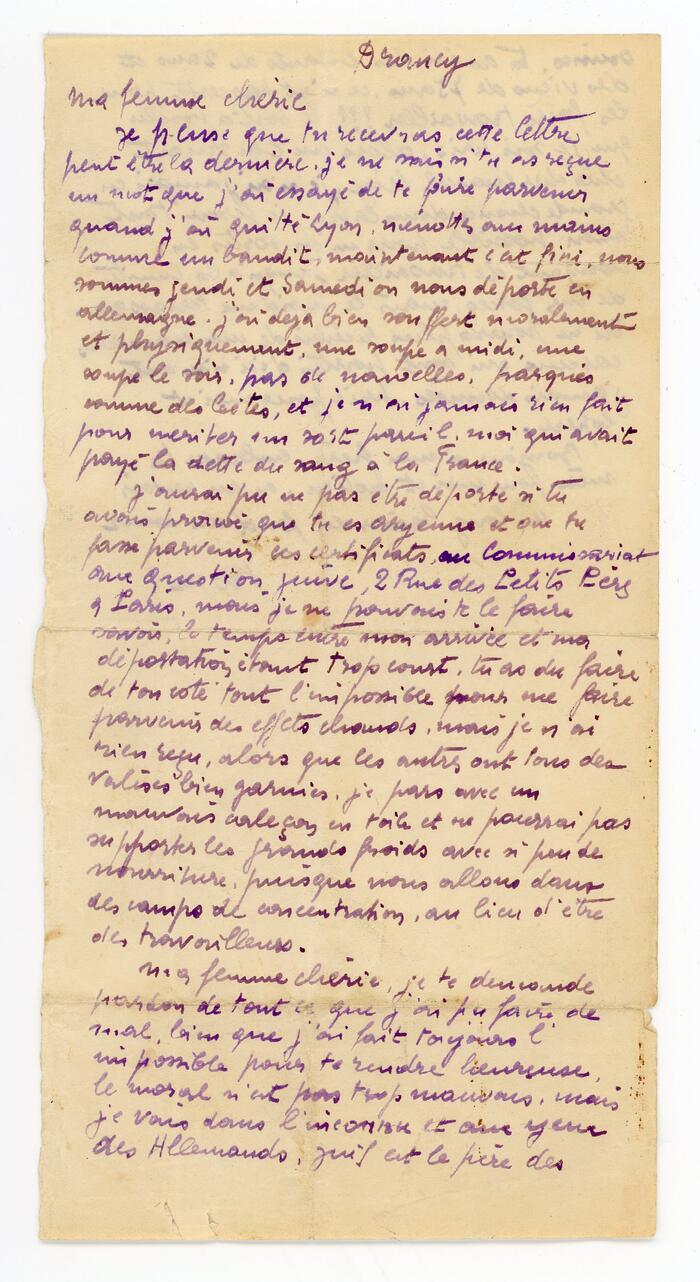 Drancy
ma femme chérie
je pense que tu recevras cette lettre
peut être la dernière. je ne sais si tu as reçue
un mot que j'ai essayé de te faire parvenir
quand j'ai quitté Lyon, menottes aux mains
comme un bandit, maintenant c'est fini, nous
sommes jeudi et Samedi on nous déporte en
allemagne. j'ai deja bien souffert moralement
et physiquement, une soupe a midi, une
soupe le soir, pas de nouvelles, parqués
comme des bêtes, et je n'ai jamais rien fait
pour meriter un sort pareil, moi qui avait
payé la dette du sang à la France.
j'aurai pu ne pas être déporté si tu
avais prouvé que tu es aryenne et que tu
fasse parvenir ces certificats, au Commissariat
aux question juive, 2 Rue des Petits Pères
a Paris, mais je ne pouvais te le faire
savoir, le temps entre mon arrivée et ma
déportation étant trop court, tu as du faire
de ton coté tout l'impossible pour me faire
parvenir des effets chauds, mais je n'ai
rien reçu, alors que les autres ont tous des
valises bien garnies. je pars avec un
mauvais caleçon en toile et ne pourrai pas
supporter les grands froids avec si peu de
nourriture, puisque nous allons dans
des camps de concentration, au lieu d'être
des travailleurs.
ma femme chérie, je te demande
pardon de tout ce que j'ai pu faire de
mal, bien que j'ai fait toujours l'
impossible pour te rendre heureuse,
le moral n'est pas trop mauvais, mais
je vais dans l'inconnu et aux yeux
des Allemands, juif est le père des